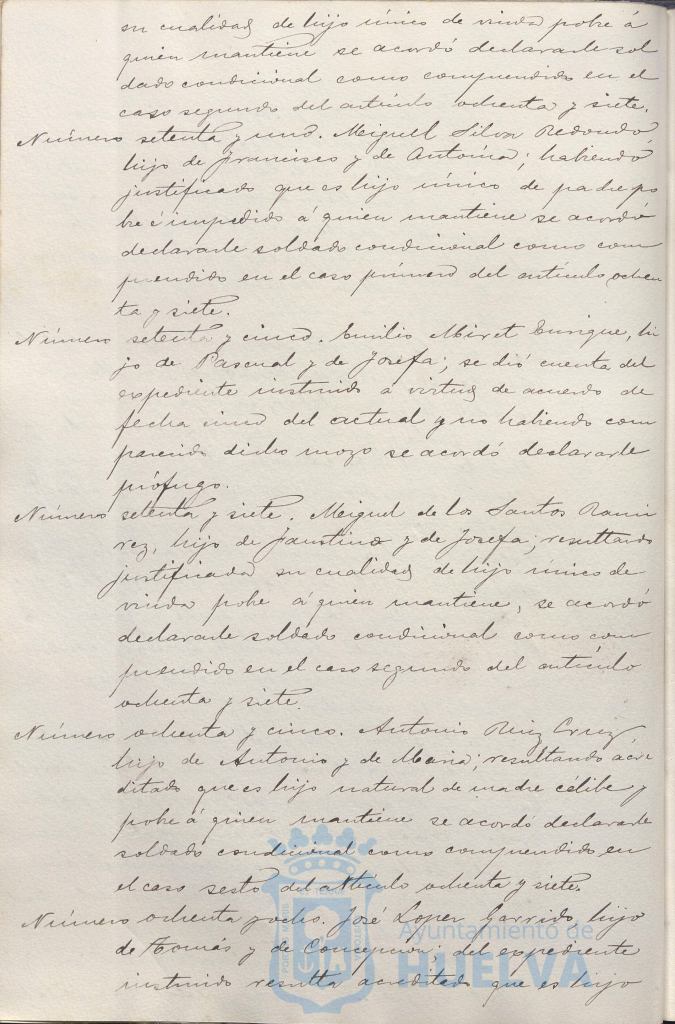 su cualidad de hijo único de viuda pobre á
quien mantiene se acordó declararle sol
dado condicional como comprendido en el
caso segundo del artículo ochenta y siete.
Número setenta y uno. Miguel Silva Redondo,
hijo de Francisco y de Antonia; habiendo
justificado que es hijo único de padre po
bre é impedido á quien mantiene se acordó
declararle soldado condicional como com
prendido en el caso primero del artículo ochen
ta y siete.
Número setenta y cinco. Emilio Miret Enrique, hi
jo de Pascual y de Josefa; se dió cuenta del
expediente instruido a virtud de acuerdo de
fecha cinco del actual y no habiendo com
parecido dicho mozo se acordó declararle
prófugo.
Número setenta y siete. Miguel de los Santos Rami
rez, hijo de Faustino y de Josefa; resultando
justificada su cualidad de hijo único de
viuda pobre á quien mantiene, se acordó
declararle soldado condicional como com
prendido en el caso segundo del artículo
ochenta y siete.
Número ochenta y cinco. Antonio Ruiz Cruz,
hijo de Antonio y de Maria; resultando acre
ditado que es hijo natural de madre célibe y
pobre á quien mantiene se acordó declararle
soldado condicional como comprendido en
el caso sesto del artículo ochenta y siete.
Número ochenta y ocho. José Lopez Garrido, hijo
de Tomás y de Concepcion; del expediente
instruido resulta acreditado que es hijo
Ayuntamiento de
HUELVA